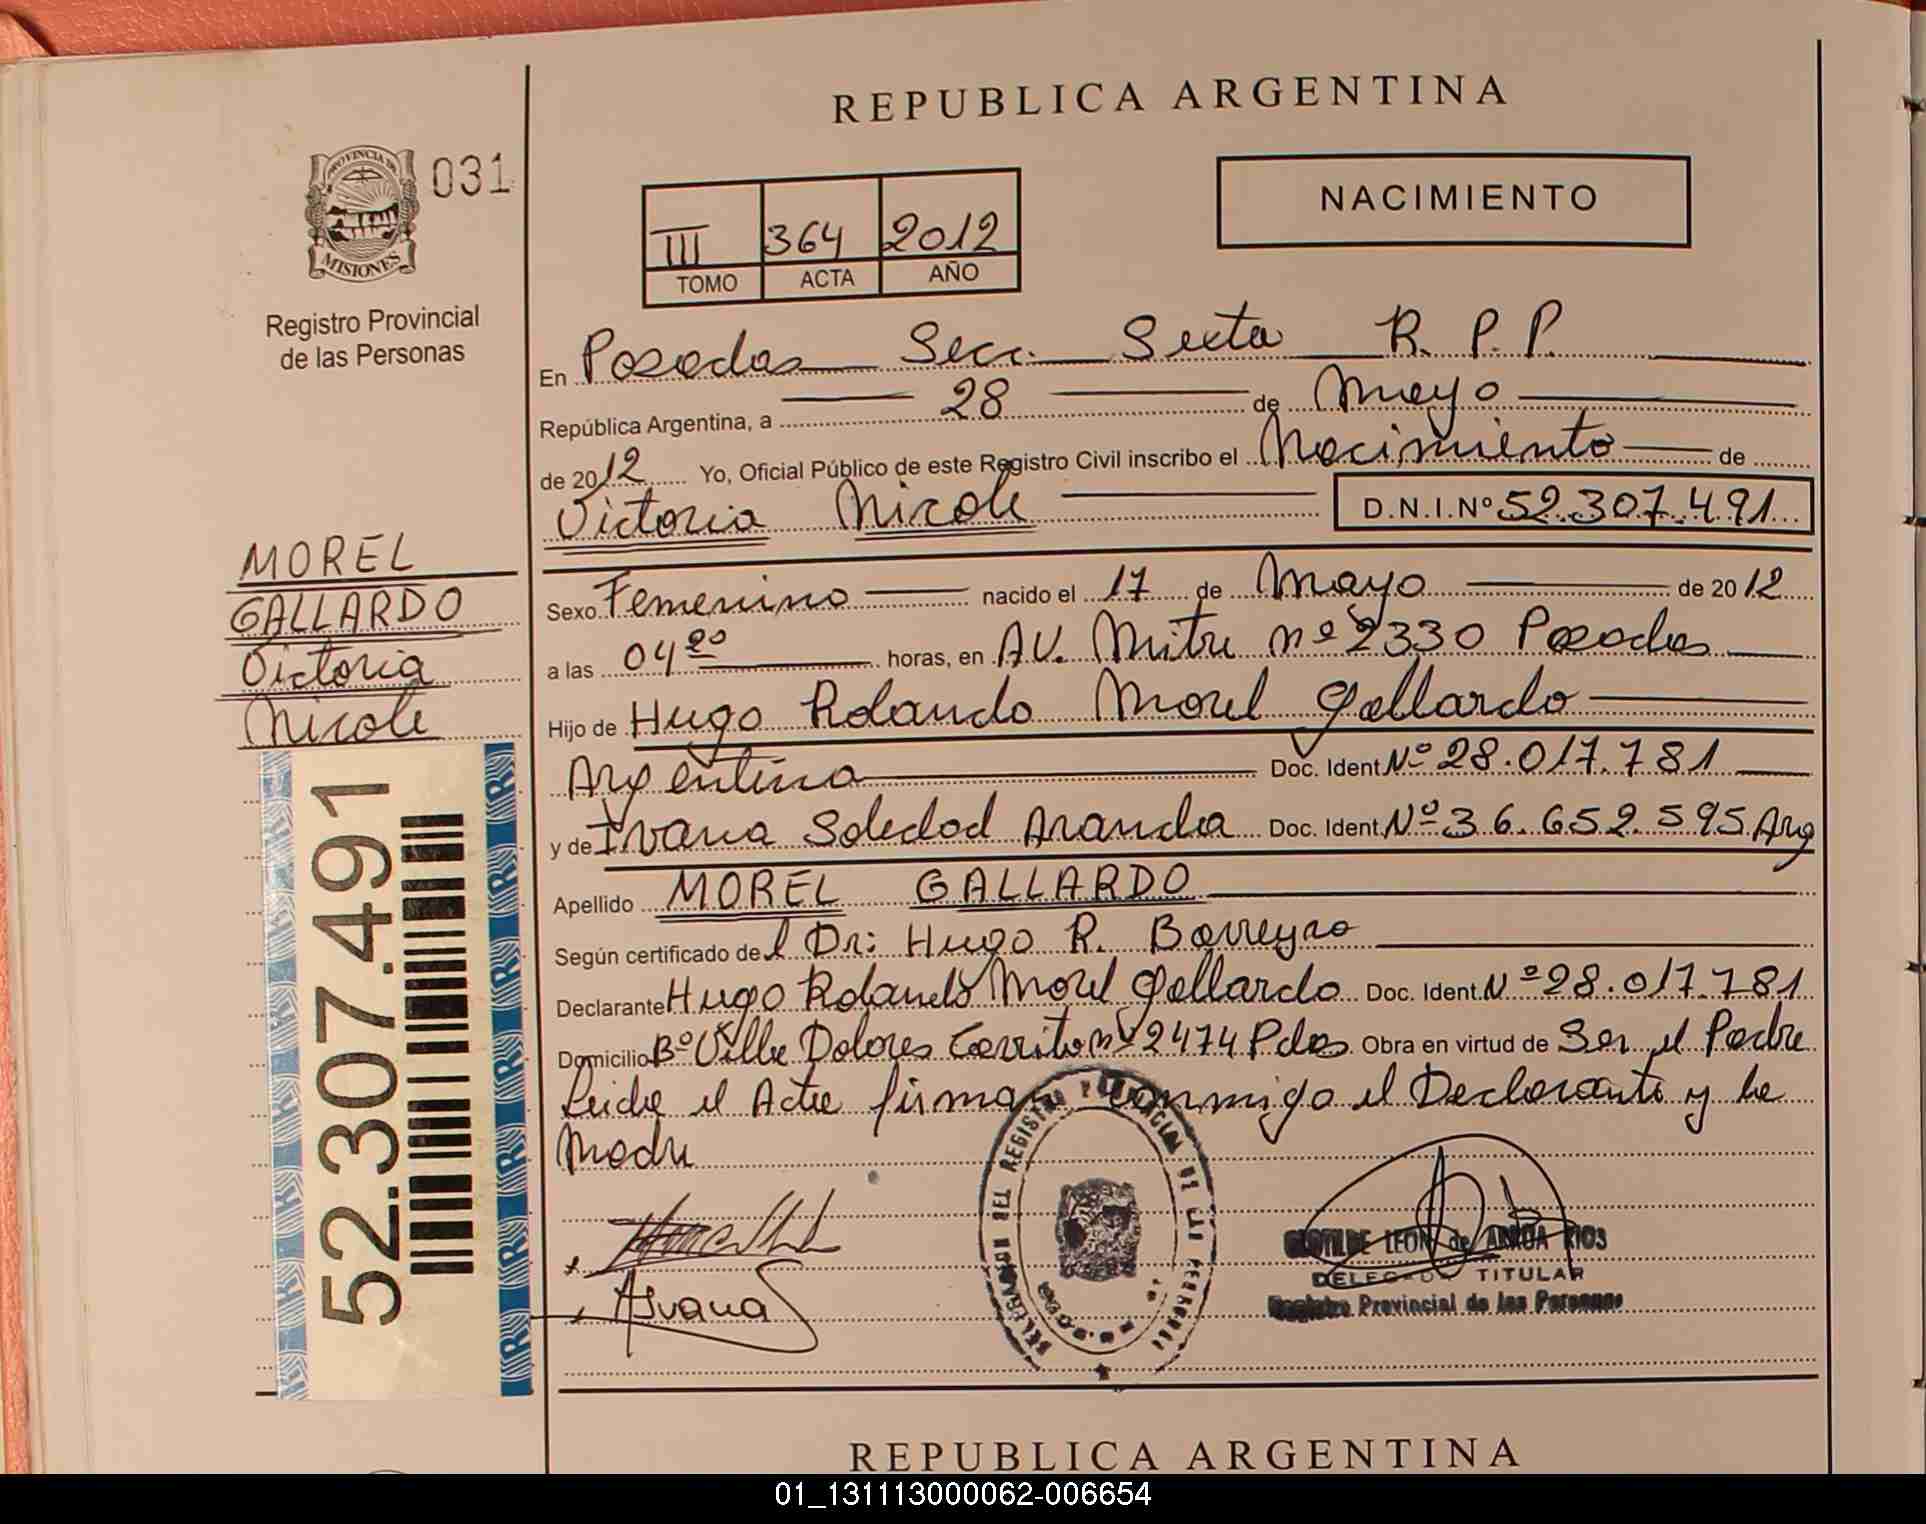 REPUBLICA ARGENTINA
PROVINCIA DE
MISIONES
031
Registro Provincial
de las Personas
NACIMIENTO
III 364 2012
TOMO ACTA AÑO
En Posadas Secc. Sexta R. P. P.
República Argentina, a 28 de Mayo
de 2012 Yo, Oficial Público de este Registro Civil inscribo el Nacimiento de
Victoria Nicole D.N.I.Nº 52.307.491
MOREL
GALLARDO
Victoria
Nicole
52.307.491
Sexo Femenino nacido el 17 de Mayo de 2012
a las 04 20 horas, en AV. Mitre nº 2330 Posadas
Hijo de Hugo Rolando Morel Gallardo
Argentino Doc. Ident. Nº 28.017.781
y de Ivana Soledad Aranda Doc. Ident. Nº 36.652.595 Arg
Apellido MOREL GALLARDO
Según certificado del Dr: Hugo R. Barreyro
Declarante Hugo Rolando Morel Gallardo Doc. Ident. Nº 28.017.781
Domicilio Bº Villa Dolores Cerrito nº 2474 Pdas Obra en virtud de Ser el Padre
Leida el Acta firman conmigo el Declarante y la
Madre
Ivana
CLOTILDE LEON de RIOS
DELEGADA TITULAR
Registro Provincial de las Personas
REPUBLICA ARGENTINA
01_131113000062-006654